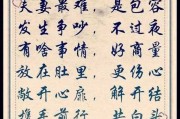 夫妻最难是包容
发生争吵,不过夜
有啥事情好商量
放在肚里,更伤心
敞开心扉,解开结
携手前行,共白头